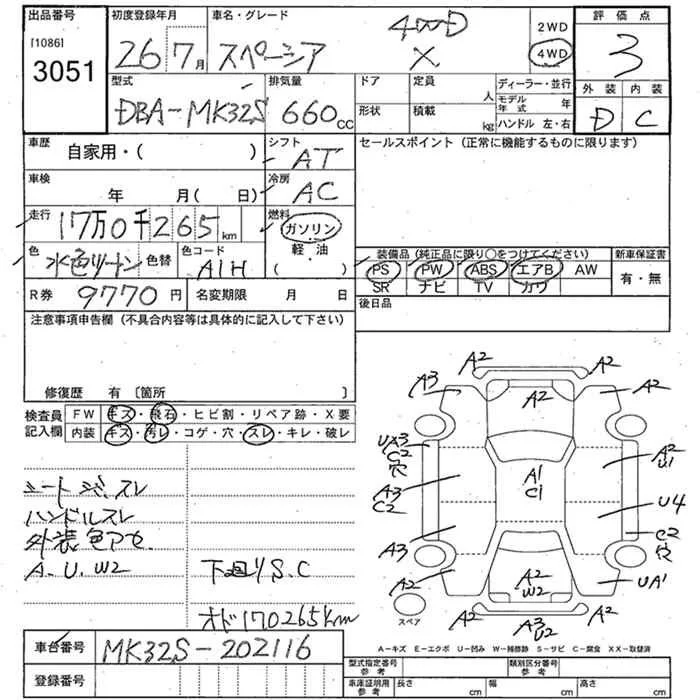 出品番号 初度登録年月 車名・グレード 2WD 4WD 評価点
[1086] 3051 26 7月 スペーシア 4WD X 3
型式 排気量 ドア 定員 人 ディーラー・並行 外装 内装
DBA-MK32S 660cc 形状 積載 kg モデル年式 年 ハンドル 左・右 D C
車歴 自家用・( ) シフト AT セールスポイント (正常に機能するものに限ります)
車検 年 月( 日) 冷房 AC
走行 17万0千265km 燃料 ガソリン 軽・油 ( )
色 水色ツートン 色替 色コード A1H
装備品(純正品に限り○をつけてください) 新車保証書
PS PW ABS エアB AW 有・無
SR ナビ TV カワ
R券 9770円 名変期限 月 日 後日品
注意事項申告欄 (不具合内容等は具体的に記入して下さい)
修復歴 有 〔箇所 〕
検査員記入欄 FW キズ・飛石・ヒビ割・リペア跡・X要
内装 キズ・汚レ・コゲ・穴・スレ・キレ・破レ
ハンドルスレ
外装色アセ
A.U.W2 下廻りS.C
オド170265km
A2 A2
A3 A2 A2
A2
UA3 C2 穴 A1 C1 A2 U1
A3 C2 U4
C2 穴
A3
A2 A2 W2 UA1
A2 A3 U2 A2
スペア
A-キズ E-エクボ U-凹み W-補修跡 S-サビ C-腐食 XX-取替済
車台番号 MK32S-202116
登録番号
型式指定番号 参考 類別区分番号 参考
車庫証明用 参考 長さ cm 幅 cm 高さ cm